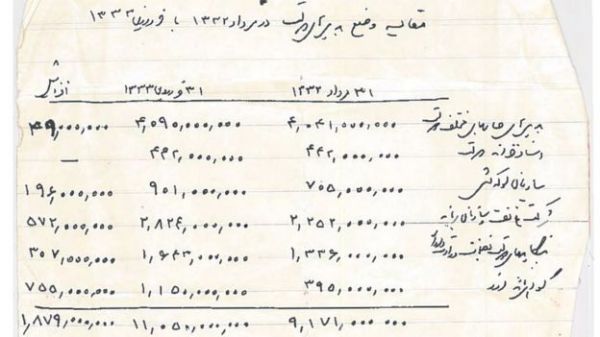 مقایسه وضع بدهی دولت در مرداد ۱۳۳۲ با فروردین ۱۳۳۳
۳۱ مرداد ۱۳۳۲ ۳۱ فروردین ۱۳۳۳ افزایش
مختلف دولت ۴,۰۴۱,۰۰۰,۰۰۰ ۴,۰۹۰,۰۰۰,۰۰۰ ۴۹,۰۰۰,۰۰۰
اسناد خزانه دولت ۴۴۲,۰۰۰,۰۰۰ ۴۴۲,۰۰۰,۰۰۰ —
سازمان لوله‌کشی ۷۰۵,۰۰۰,۰۰۰ ۹۰۱,۰۰۰,۰۰۰ ۱۹۶,۰۰۰,۰۰۰
شرکت نفت و سازمان برنامه ۲,۲۵۲,۰۰۰,۰۰۰ ۲,۸۲۴,۰۰۰,۰۰۰ ۵۷۲,۰۰۰,۰۰۰
۱,۳۳۶,۰۰۰,۰۰۰ ۱,۶۴۳,۰۰۰,۰۰۰ ۳۰۷,۰۰۰,۰۰۰
۳۹۵,۰۰۰,۰۰۰ ۱,۱۵۰,۰۰۰,۰۰۰ ۷۵۵,۰۰۰,۰۰۰
۹,۱۷۱,۰۰۰,۰۰۰ ۱۱,۰۵۰,۰۰۰,۰۰۰ ۱,۸۷۹,۰۰۰,۰۰۰